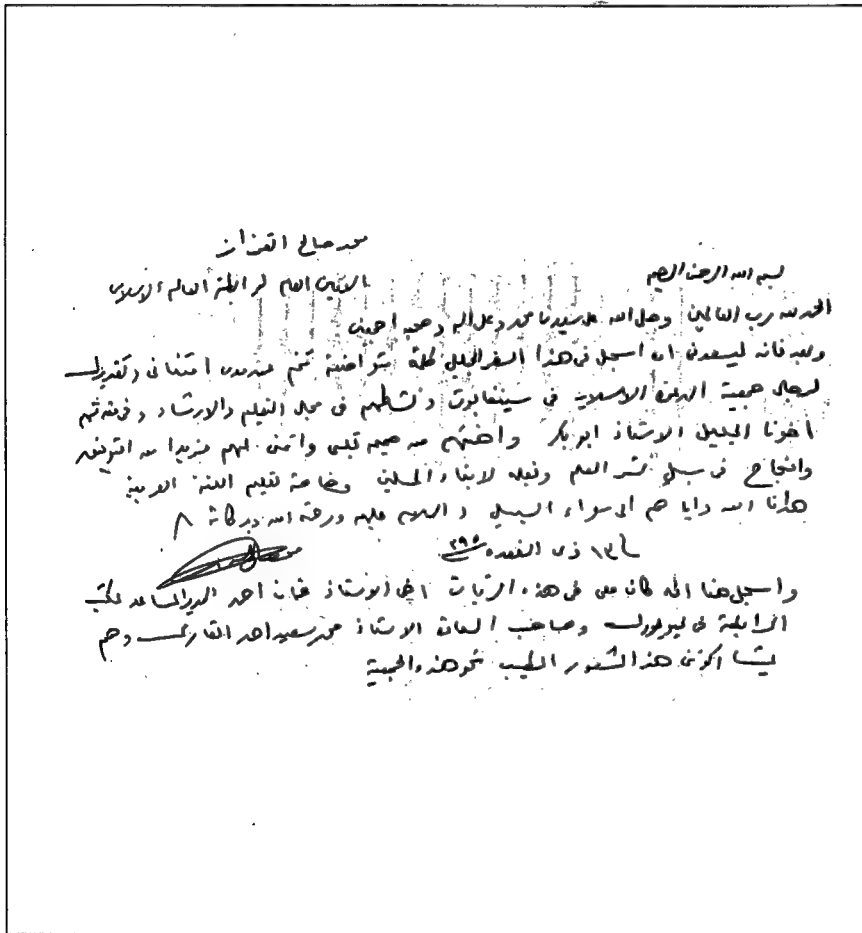 محمد صالح القزاز
الامين العام لرابطة العالم الاسلامى
بسم الله الرحمن الرحيم
الحمد لله رب العالمين وصلى الله على سيدنا محمد وعلى اله وصحبه اجمعين
وبعد فانه ليسعدنى ان اسجل فى هذا السفر الجليل كلمة متواضعة تنم عن مدى امتنانى وتقديرى
لرجال جمعية الدعوة الاسلامية فى سينغابورة ونشاطهم فى مجال التعليم والارشاد وفى مقدمتهم
أخونا الجليل الاستاذ ابو بكر واهنئهم من صميم قلبى واتمنى لهم مزيدا من التوفيق
والنجاح فى سبيل نشر العلم ونقله لابناء المسلمين وخاصة تعليم اللغة العربية
هدانا الله وايا هم الى سواء السبيل والسلام عليه ورحمة الله وبركاته
١٣ ذى القعدة ٢٩٥
واسجل هنا انه كان معى فى هذه الزيارات اخى الاستاذ احمد المدير المساعد لمكتب
الرابطة فى نيويورك وصاحب السعادة الاستاذ محمد سعيد احمد وهم
يشاركوننى هذ الشعور الطيب نحو هذه الجمعية